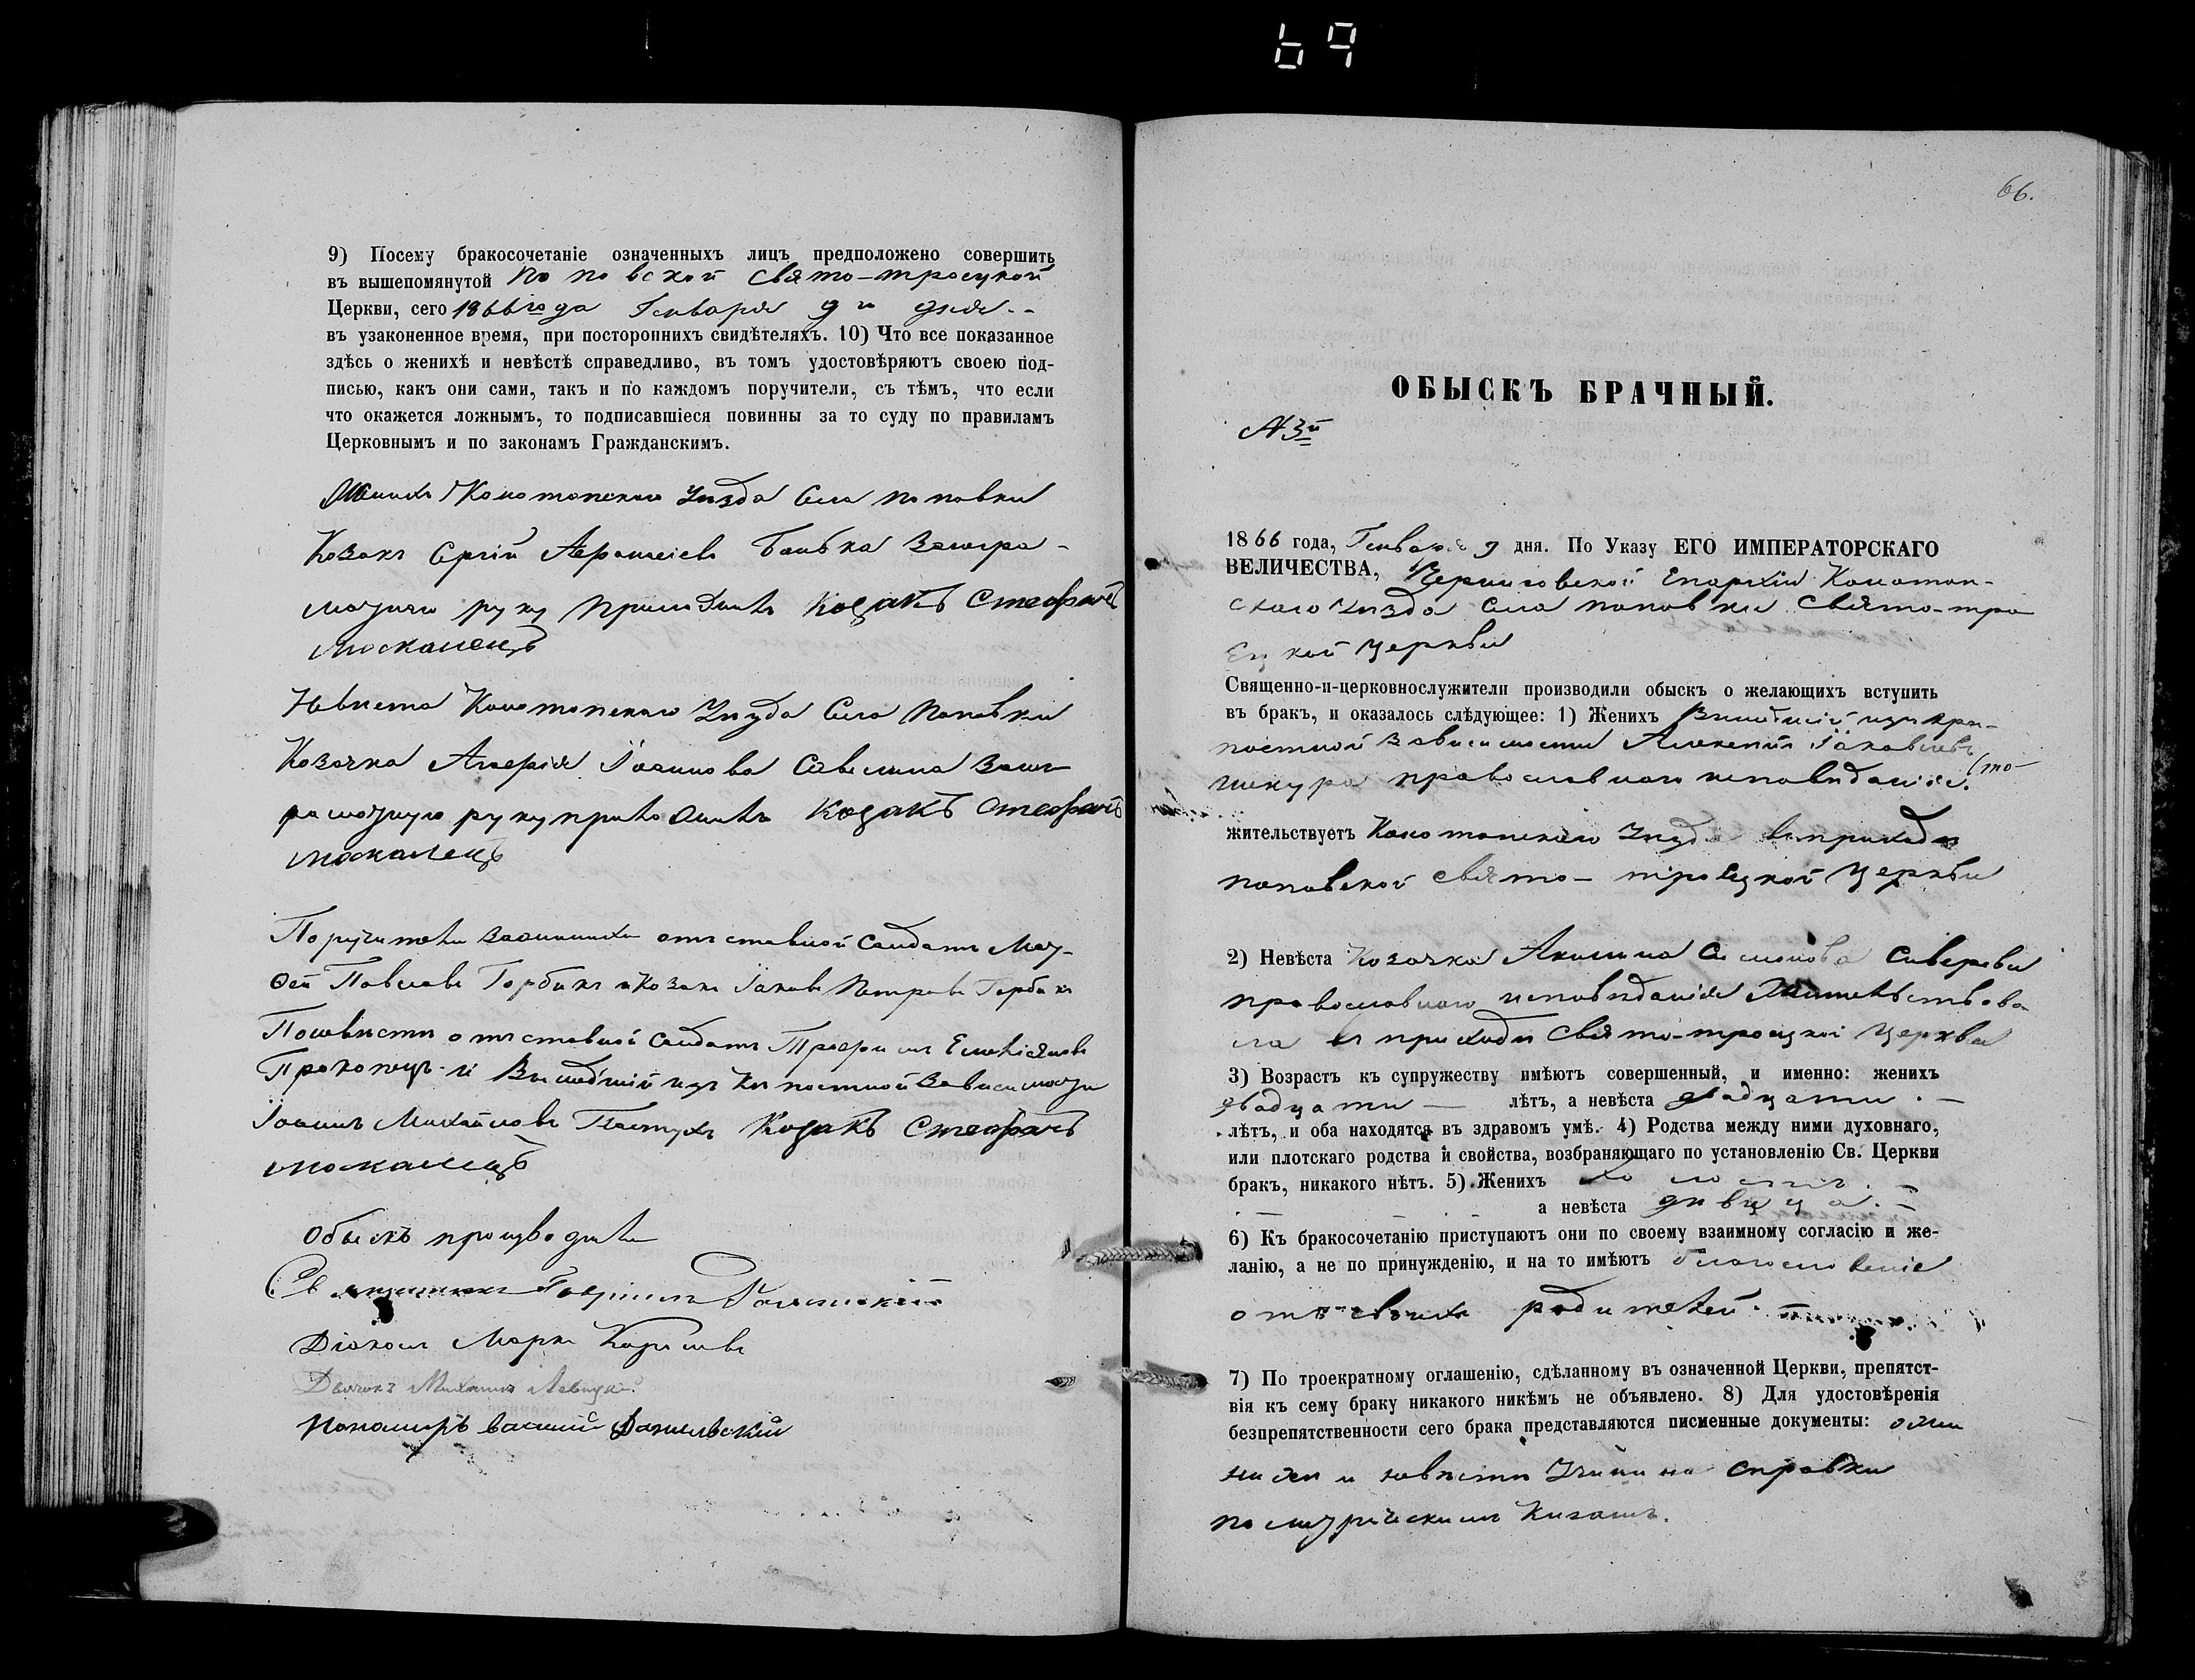 69
9) Посему бракосочетаніе означенныхъ лицъ предположено совершить
въ вышепомянутой Поповской Свято-троецкой
Церкви, сего 1866 года Генваря 9 дня
въ узаконенное время, при постороннихъ свидѣтеляхъ. 10) Что все показанное
здѣсь о женихѣ и невѣстѣ справедливо, въ томъ удостовѣряютъ своею под-
писью, какъ они сами, такъ и по каждомъ поручители, съ тѣмъ, что если
что окажется ложнымъ, то подписавшіеся повинны за то суду по правиламъ
Церковнымъ и по законамъ Гражданскимъ.
Женихъ Конотопскаго Уѣзда Села Поповки
Козакъ Сергій
руку приложилъ Козакъ Стефанъ
Москалецъ
Невѣста Конотопскаго Уѣзда Села Поповки
Козачка Агафія Іоаннова
руку приложилъ Козакъ Стефанъ
Москалецъ
Поручители отставной Солдатъ Моу-
сей Павловъ Горбикъ и Козакъ Іаковъ Петровъ Горбикъ
По невѣстѣ отставной Солдатъ Трофимъ
Прокопецъ и Вышедшій изъ Крѣпостной Зависимости
Іоаннъ Михайловъ Пастухъ Козакъ Стефанъ
Москалецъ
Обыскъ производили
Священникъ Гавріилъ
Діаконъ Марко
Дьячокъ Михаилъ Левицкій
Пономарь Василій Данилевскій
66.
ОБЫСКЪ БРАЧНЫЙ.
№ 3й
1866 года, Генваря 9 дня. По Указу ЕГО ИМПЕРАТОРСКАГО
ВЕЛИЧЕСТВА, Черниговской Епархіи Конотоп-
скаго Уѣзда Села Поповки Свято-тро
ецкой Церкви
Священно-и-церковнослужители производили обыскъ о желающихъ вступить
въ бракъ, и оказалось слѣдующее: 1) Женихъ Вышедшій изъ крѣ-
постной Зависимости Алексій Іаковлевъ
православнаго исповѣданія.
жительствуетъ Конотопскаго Уѣзда въ приходѣ
Поповской Свято-троецкой Церкви
2) Невѣста Козачка Акилина Симонова
православнаго исповѣданія Жительствова
ла въ приходѣ Свято-троецкой Церкви
3) Возрастъ къ супружеству имѣютъ совершенный, и именно: женихъ
двадцати — лѣтъ, а невѣста двадцати. —
лѣтъ, и оба находятся въ здравомъ умѣ. 4) Родства между ними духовнаго,
или плотскаго родства и свойства, возбраняющаго по установленію Св. Церкви
бракъ, никакого нѣтъ. 5) Женихъ холостъ. —
а невѣста дѣвица. —
6) Къ бракосочетанію приступаютъ они по своему взаимному согласію и же-
ланію, а не по принужденію, и на то имѣютъ благословеніе
отъ своихъ родителей.
7) По троекратному оглашенію, сдѣланному въ означенной Церкви, препятст-
вія къ сему браку никакого никѣмъ не объявлено. 8) Для удостовѣренія
безпрепятственности сего брака представляются писменные документы: о же
нихѣ и невѣстѣ справки
по метрическимъ Книгамъ.